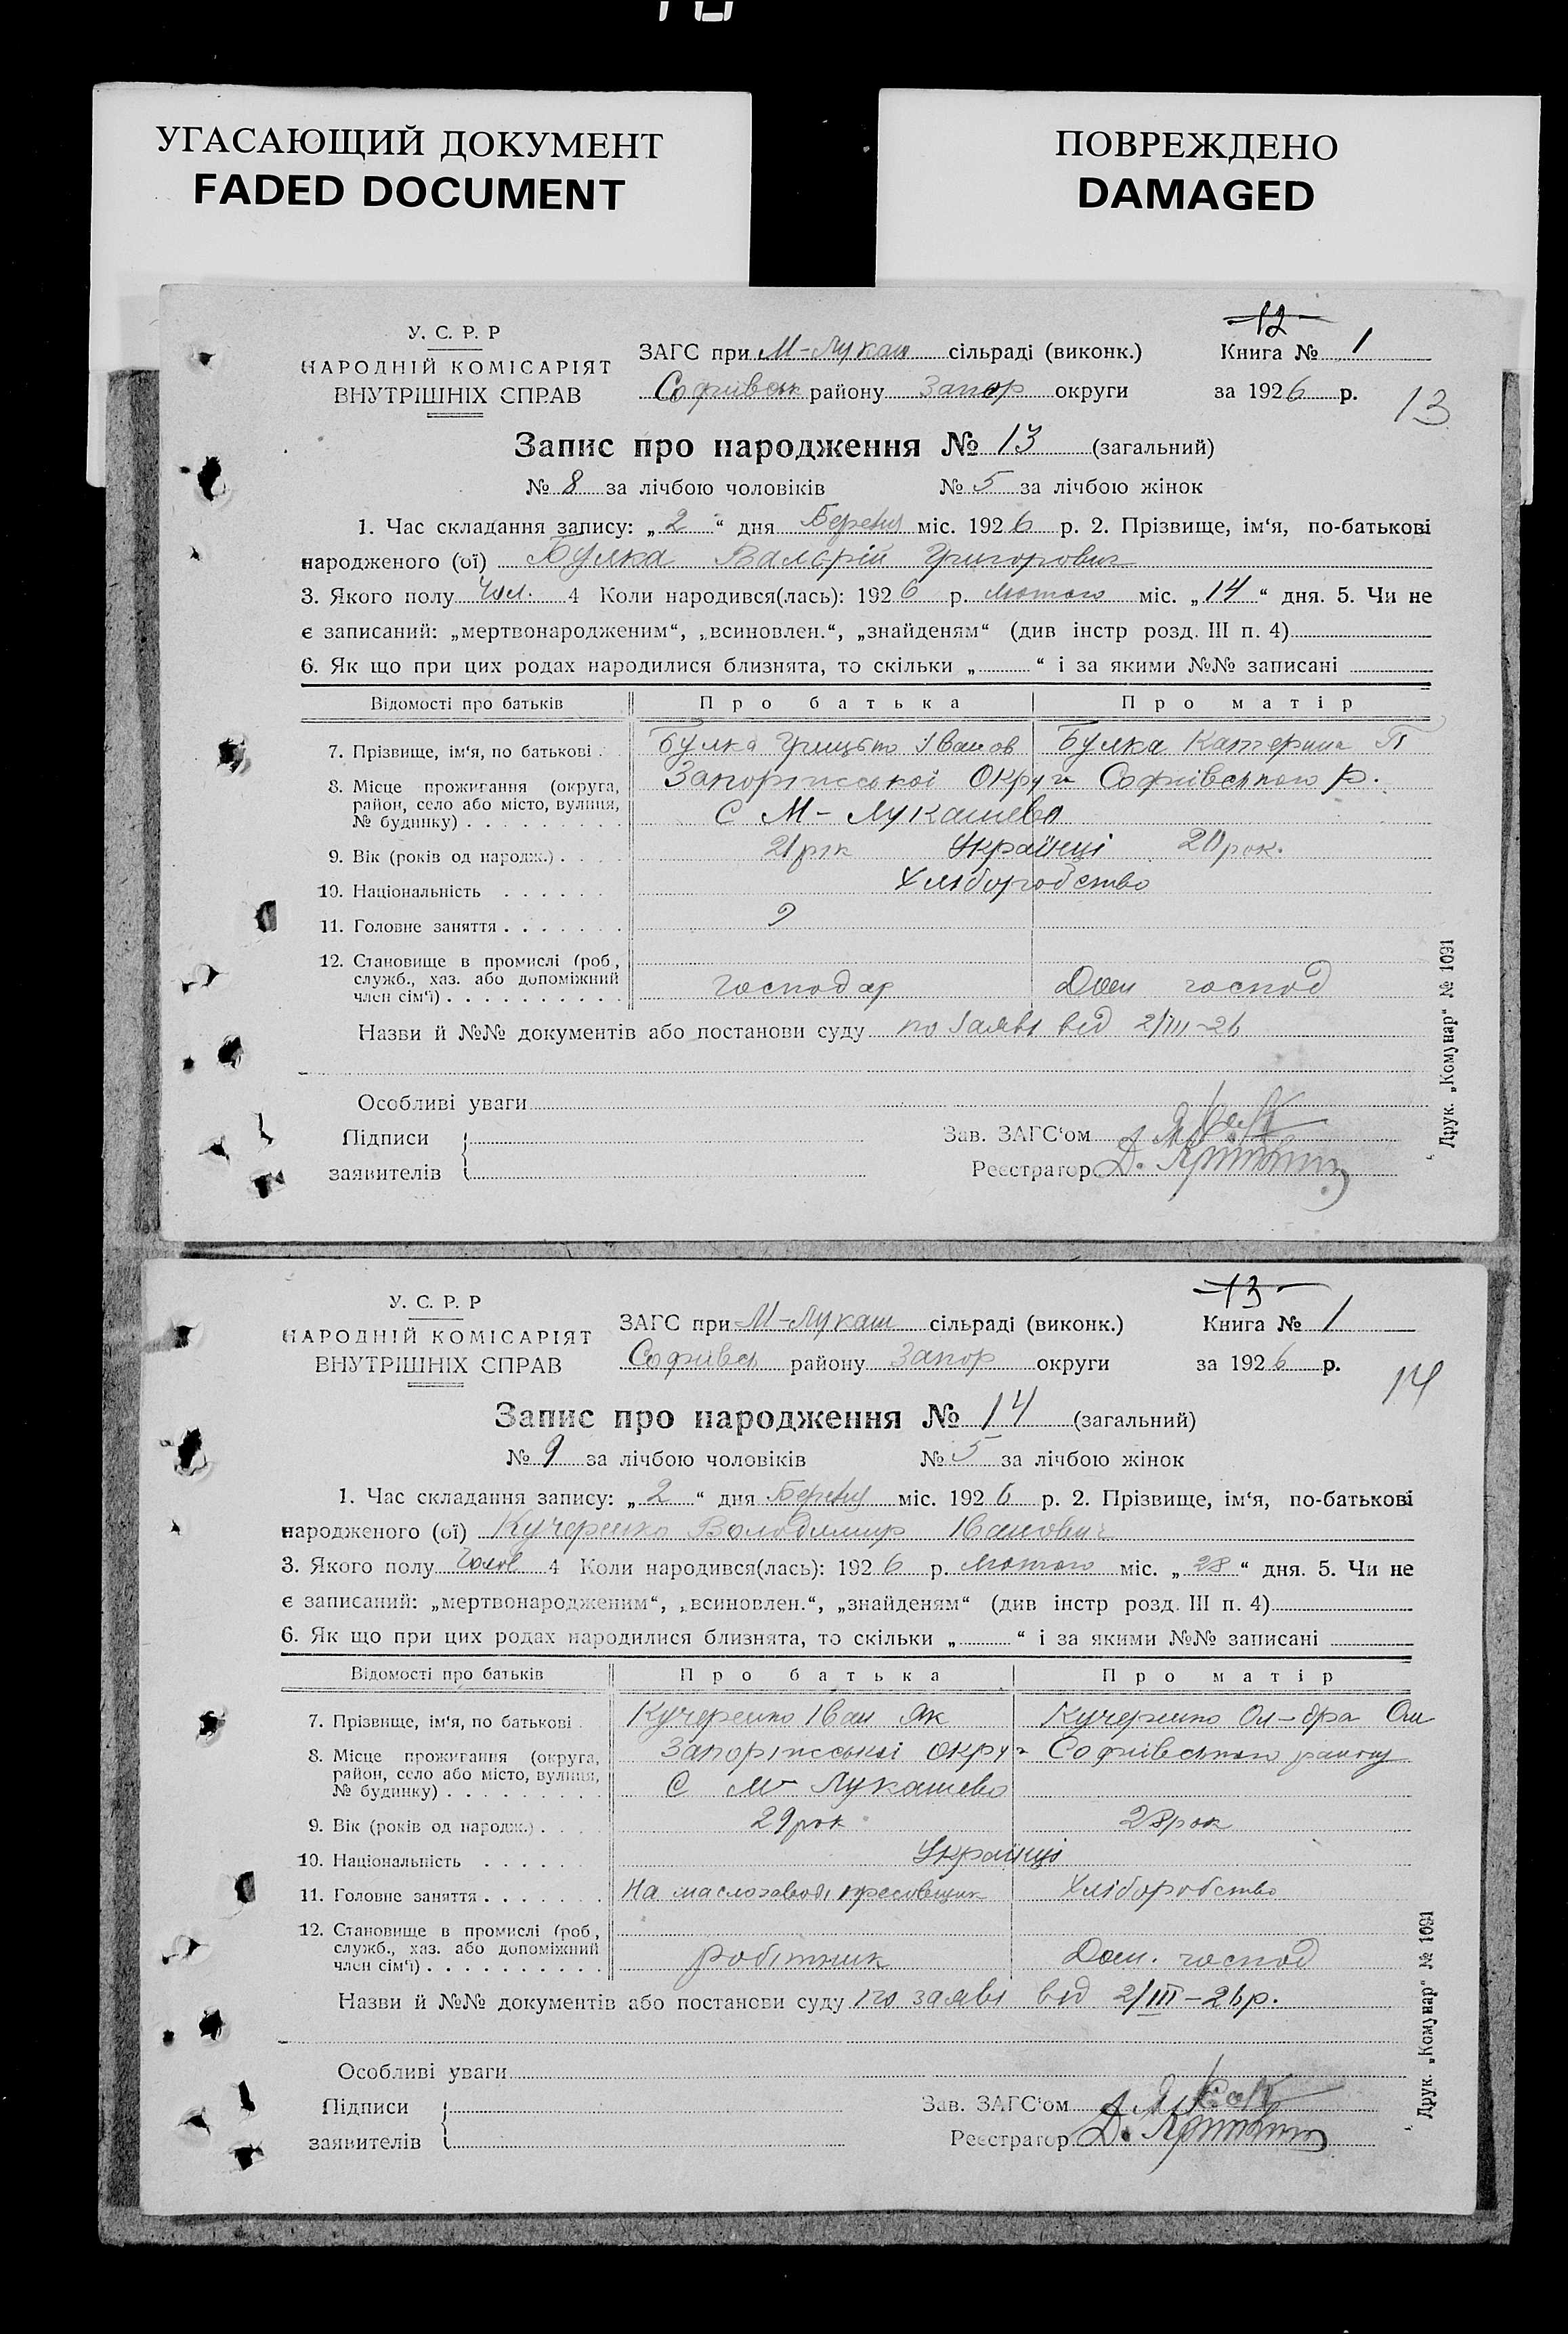 УГАСАЮЩИЙ ДОКУМЕНТ
FADED DOCUMENT
ПОВРЕЖДЕНО
DAMAGED
У. С. Р. Р
НАРОДНІЙ КОМІСАРІЯТ
ВНУТРІШНІХ СПРАВ
ЗАГС при М-Лукаш сільраді (виконк.)
Софиївськ району Запор округи
12
Книга № 1
за 1926 р.
13
Запис про народження № 13 (загальний)
№ 8 за лічбою чоловіків № 5 за лічбою жінок
1. Час складання запису: „2“ дня Березня міс. 1926 р. 2. Прізвище, ім‘я, по-батькові
народженого (ої) Булка Валерій Григорович
3. Якого полу Чол. 4 Коли народився(лась): 1926 р. лютого міс. „14“ дня. 5. Чи не
є записаний: „мертвонародженим“, „всиновлен.“, „знайденям“ (див інстр розд. III п. 4)
6. Як що при цих родах народилися близнята, то скільки „ “ і за якими №№ записані
Відомості про батьків Про батька Про матір
7. Прізвище, ім‘я, по батькові Булка Грицько Іванов Булка Катерина П
8. Місце прожигання (округа, район, село або місто, вулиця, № будинку) Запоріжської Округи Софиівського р.
С М-Лукашево
9. Вік (років од народж.) 21 рік Українці 20 рок.
10. Національність Хліборобство
11. Головне заняття
12. Становище в промислі (роб., служб., хаз. або допоміжний член сім‘ї) господар Дом господ
Назви й №№ документів або постанови суду по заяві від 2/III-26
Особливі уваги
Підписи
заявителів
Зав. ЗАГС‘ом
Реєстратор Д.
Друк. „Комунар“ № 1091
У. С. Р. Р
НАРОДНІЙ КОМІСАРІЯТ
ВНУТРІШНІХ СПРАВ
ЗАГС при М-Лукаш сільраді (виконк.)
Софиівськ району Запор округи
13
Книга № 1
за 1926 р.
14
Запис про народження № 14 (загальний)
№ 9 за лічбою чоловіків № 5 за лічбою жінок
1. Час складання запису: „2“ дня Березня міс. 1926 р. 2. Прізвище, ім‘я, по-батькові
народженого (ої) Кучеренко Володимир Іванович
3. Якого полу Чолов 4 Коли народився(лась): 1926 р. лютого міс. „28“ дня. 5. Чи не
є записаний: „мертвонародженим“, „всиновлен.“, „знайденям“ (див інстр розд. III п. 4)
6. Як що при цих родах народилися близнята, то скільки „ “ і за якими №№ записані
Відомості про батьків Про батька Про матір
7. Прізвище, ім‘я, по батькові Кучеренко Іван Як Кучеренко Ол-дра Ом
8. Місце прожигання (округа, район, село або місто, вулиця, № будинку) Запоріжської округи Софиівського району
С М-Лукашево
9. Вік (років од народж.) 29 рок 28 рок
10. Національність Українці
11. Головне заняття На маслозаводі пресовщик Хліборобство
12. Становище в промислі (роб., служб., хаз. або допоміжний член сім‘ї) робітник Дом. господ
Назви й №№ документів або постанови суду по заяві від 2/III-26 р.
Особливі уваги
Підписи
заявителів
Зав. ЗАГС‘ом
Реєстратор Д.
Друк. „Комунар“ № 1091